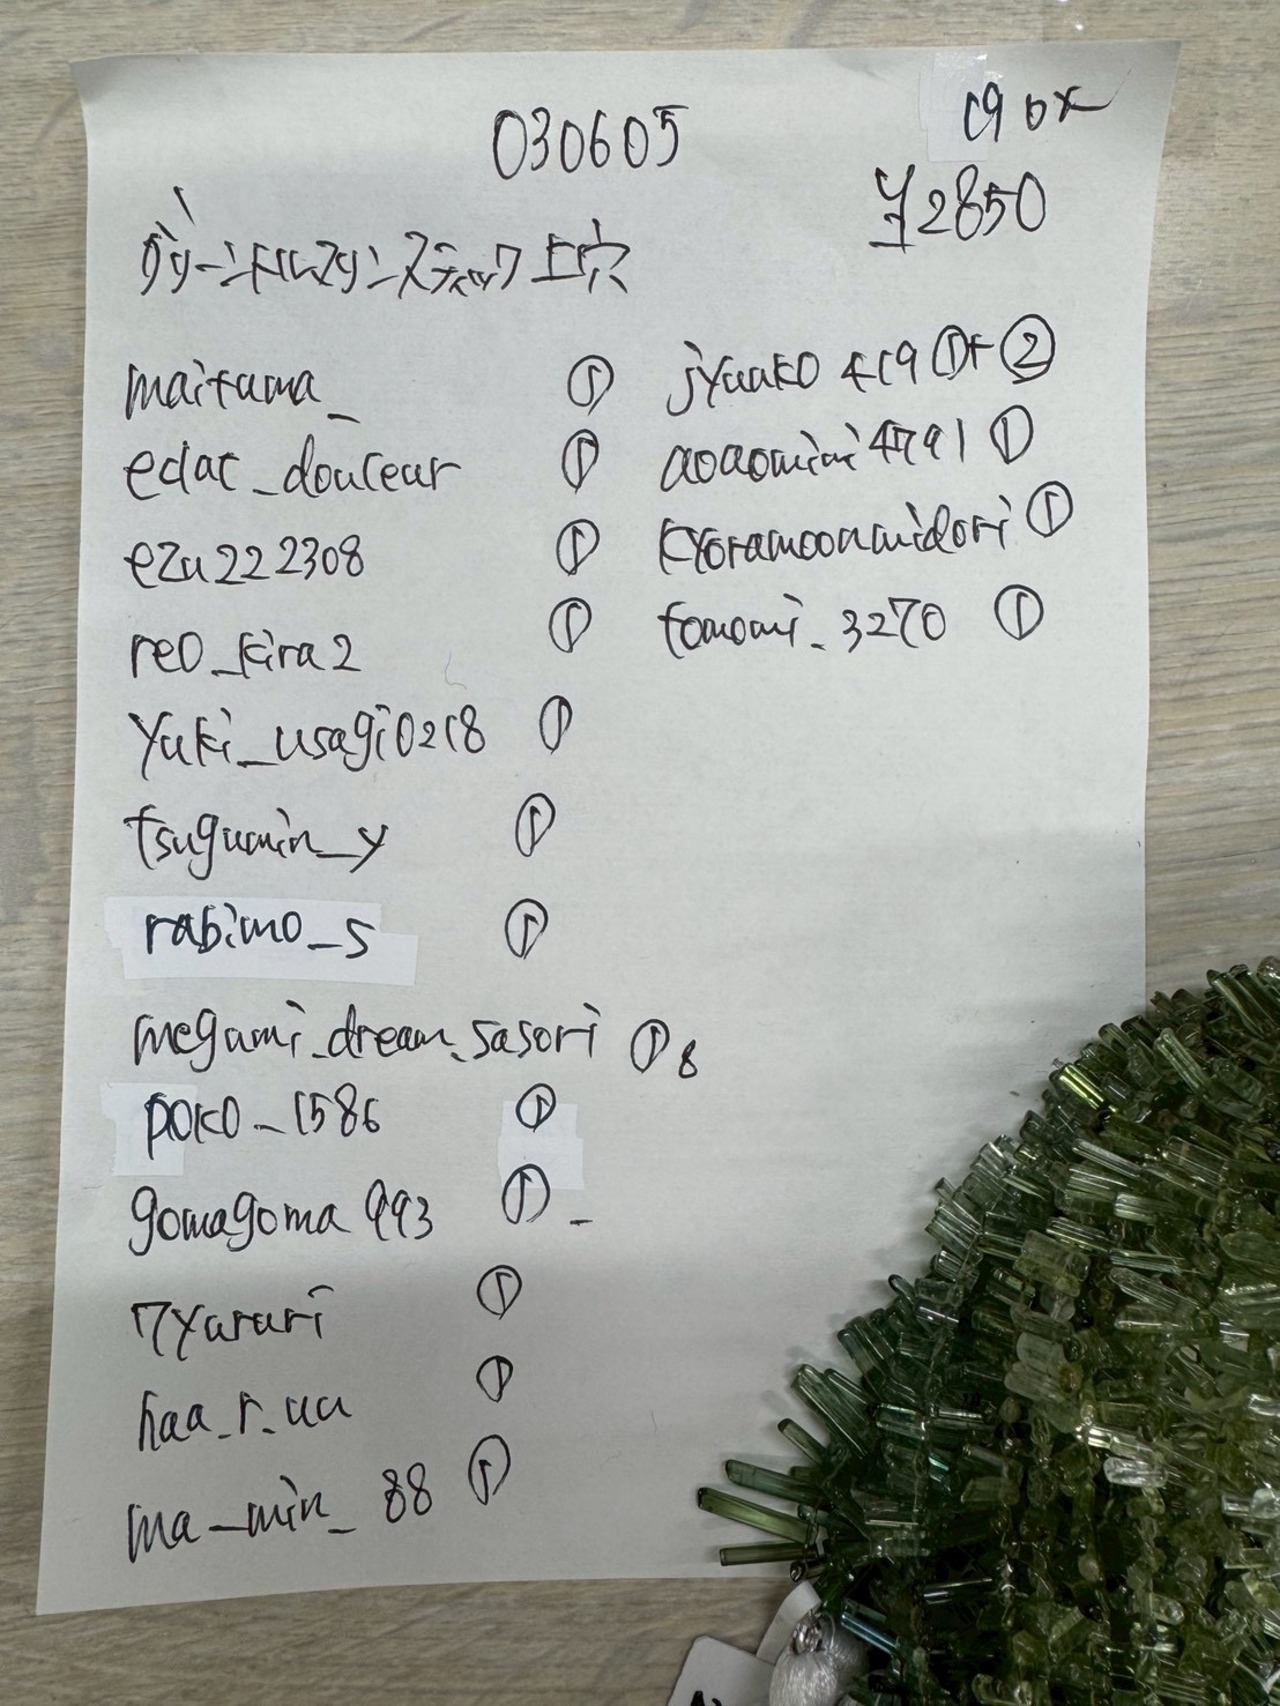 030605
¥2850
グリーントルマリンスティック上穴
maitama_ ①
eclat_douceur ①
ezu222308 ①
reo_kira2 ①
yuki_usagi0218 ①
tsugumin_y ①
rabimo_s ①
megumi_dream_sasori ① 8
poko_1586 ①
gomagoma993 ① -
7yururi ①
haa_r_uu ①
ma_min_88 ①
jyuako419 ①+②
aoaomimi4791 ①
kyoramoonmidori ①
tomomi_3270 ①